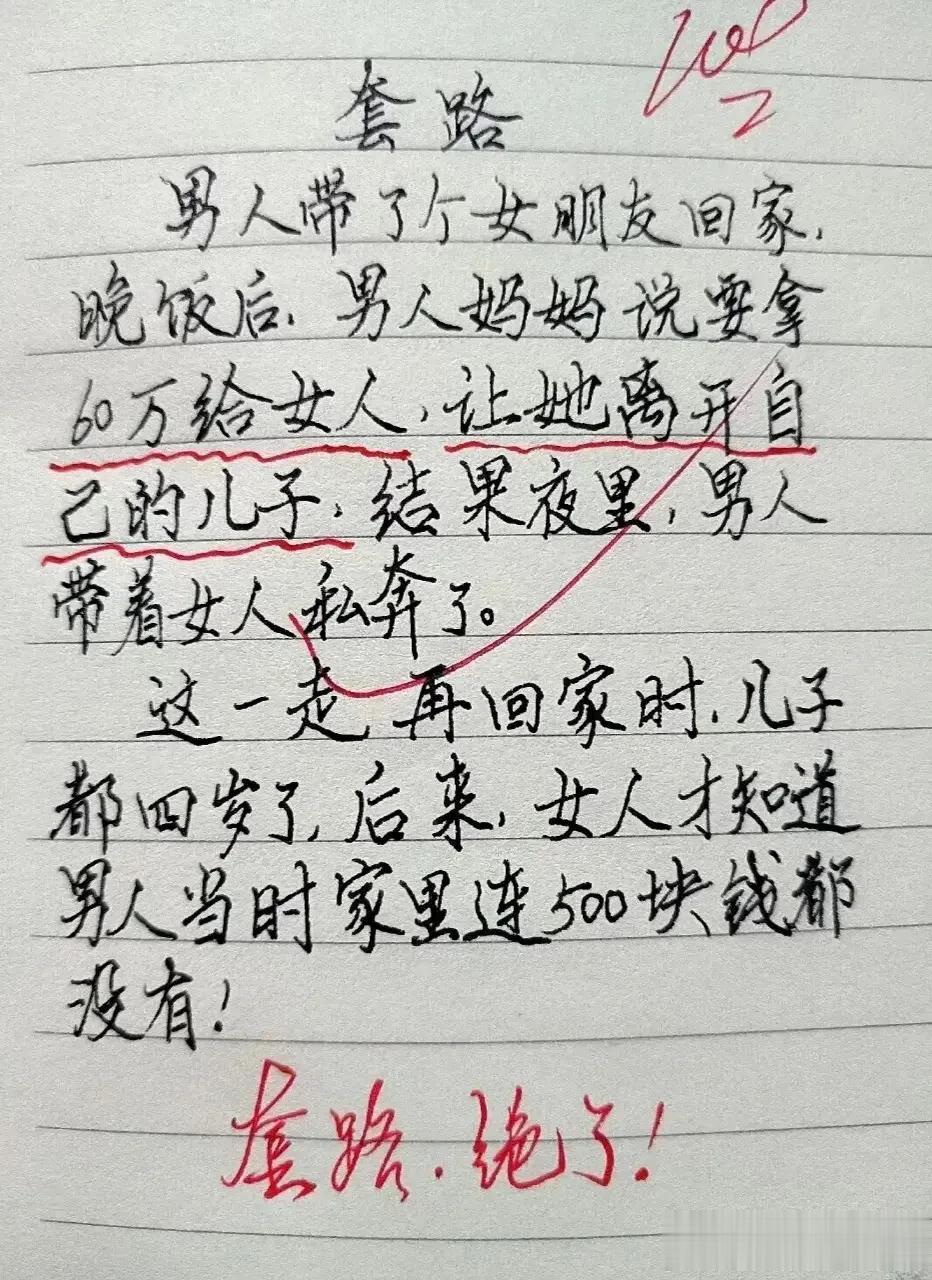 100
套路
男人带了个女朋友回家,
晚饭后,男人妈妈说要拿
60万给女人,让她离开自
己的儿子,结果夜里,男人
带着女人私奔了。
这一走,再回家时,儿子
都四岁了,后来,女人才知道
男人当时家里连500块钱都
没有!
套路.绝了!